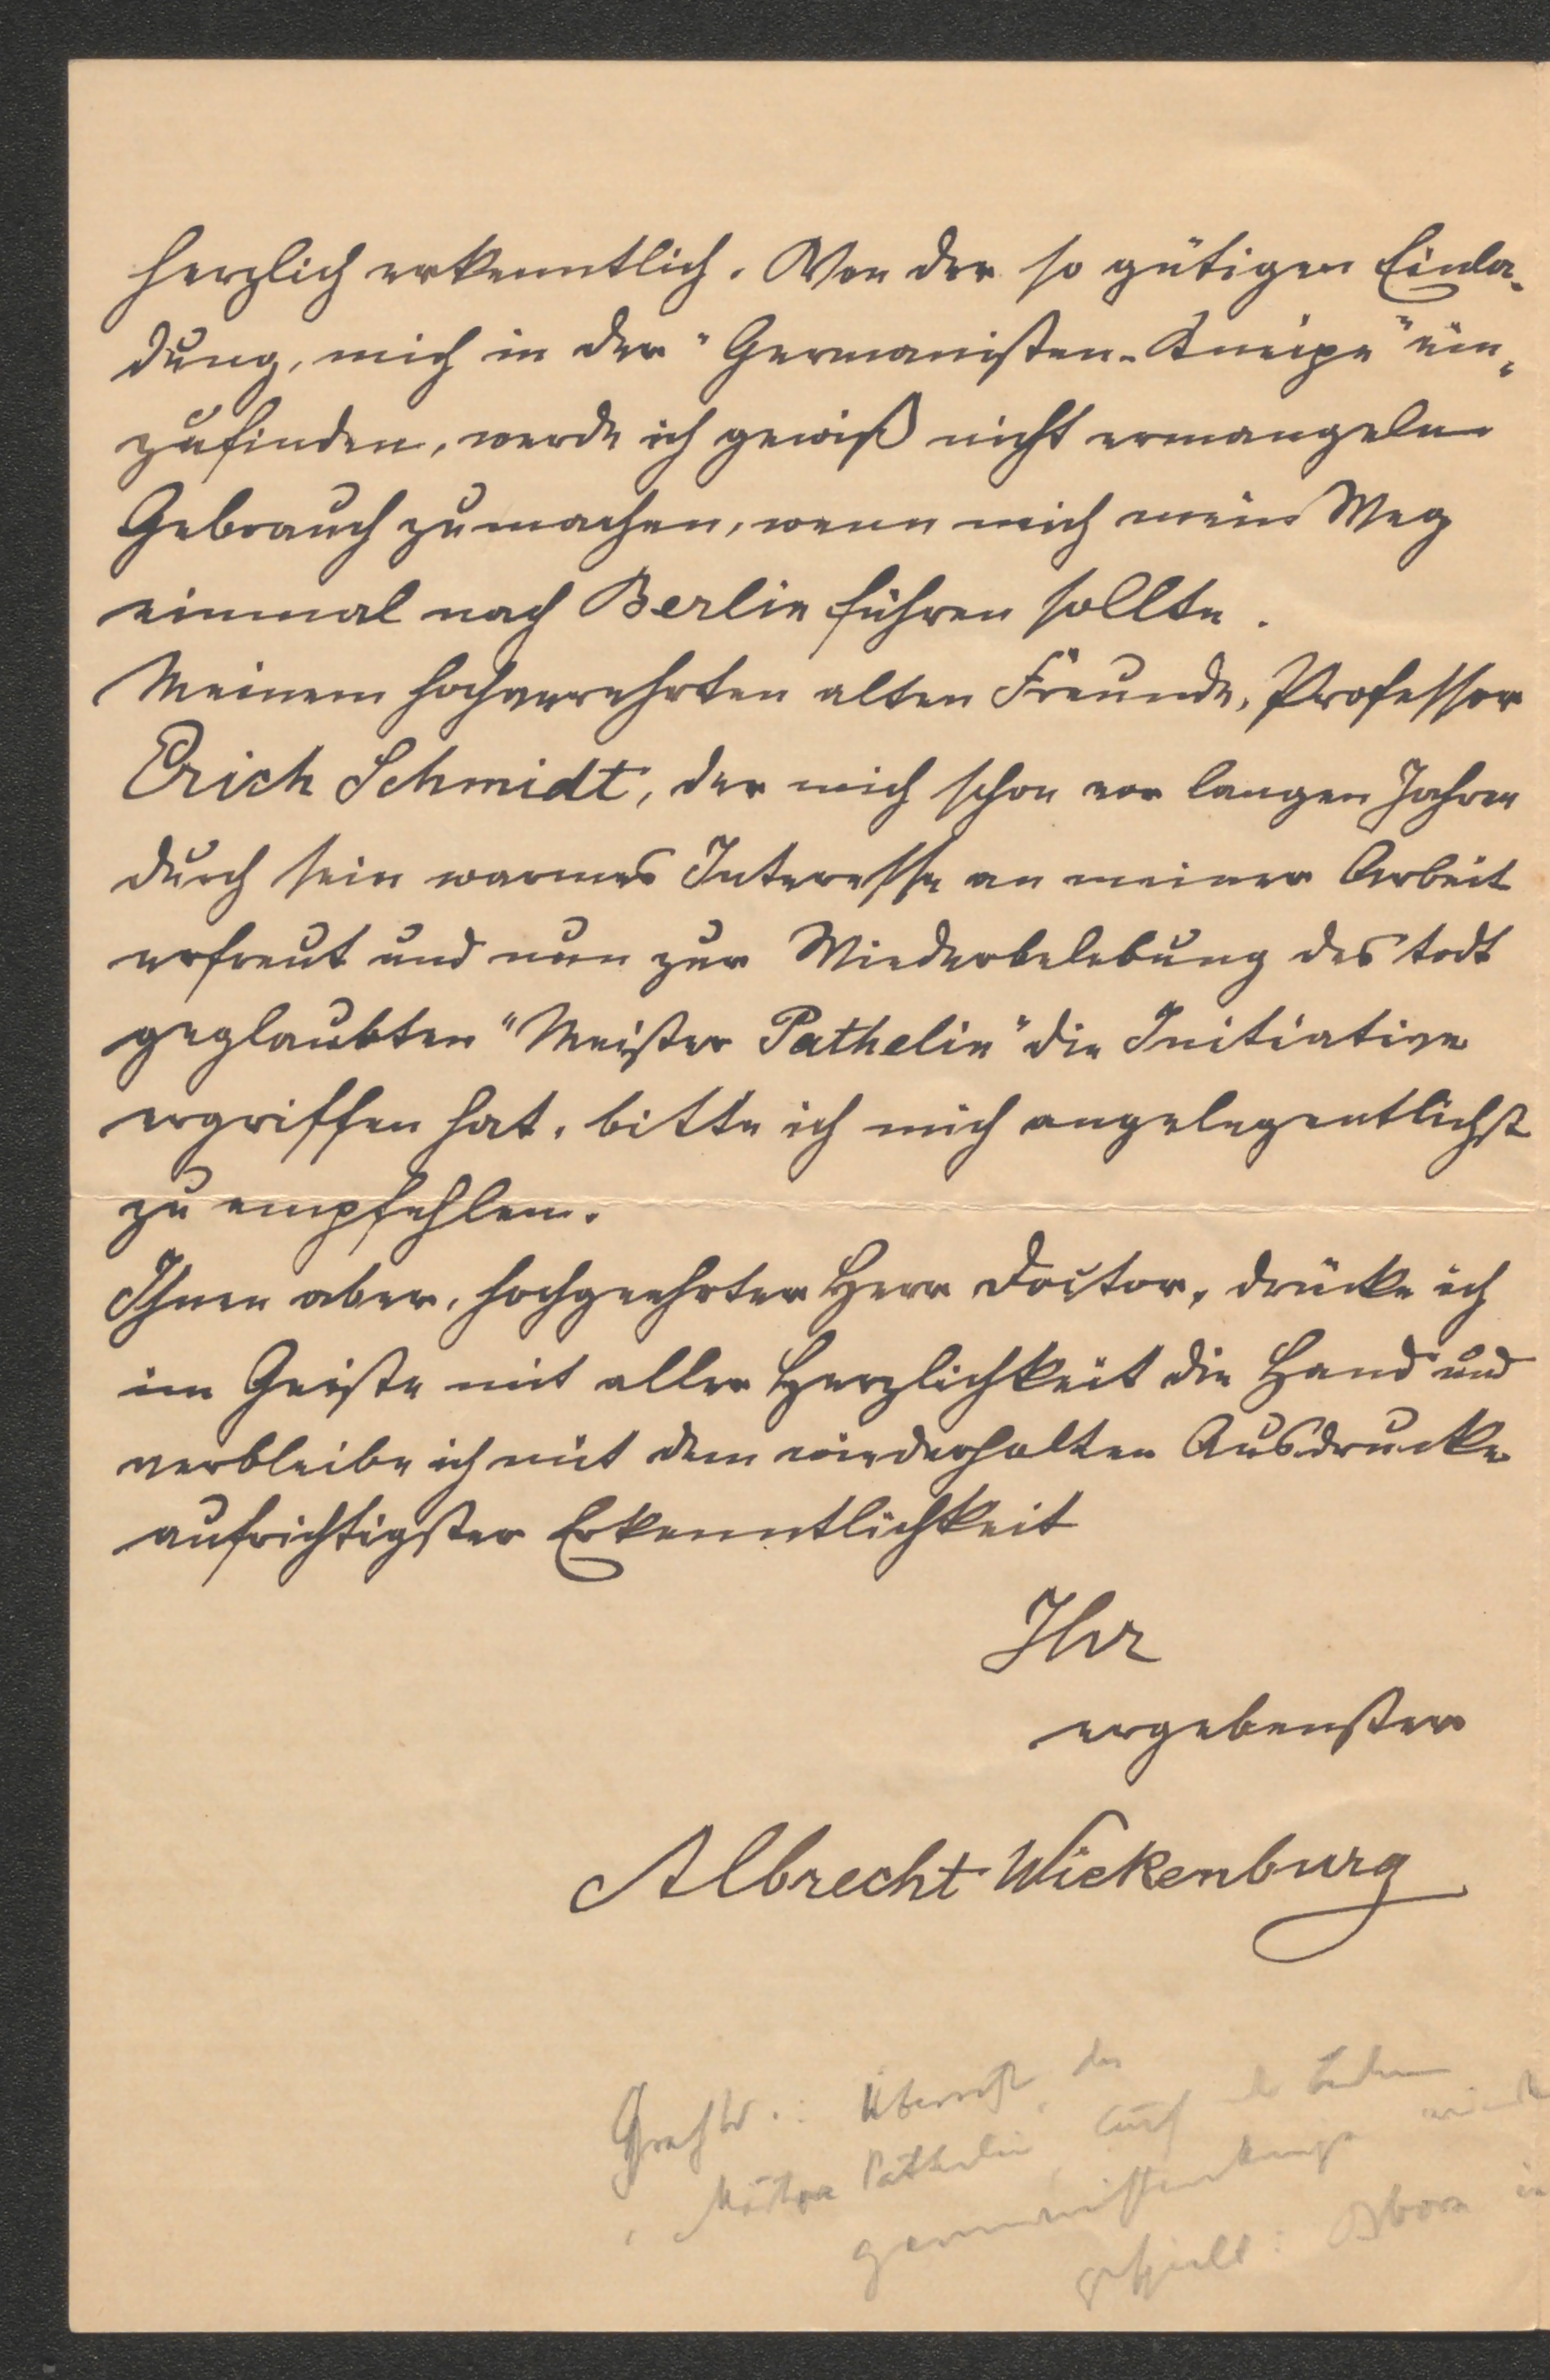 herzlich erkenntlich. Von der so gütigen Einla-
dung, mich in der "Germanisten-Kneipe" ein-
zufinden, werde ich gewiß nicht ermangeln
Gebrauch zu machen, wenn mich mein Weg
einmal nach Berlin führen sollte.
Meinem hochverehrten alten Freunde, Professor
Erich Schmidt, der mich schon vor langen Jahren
durch sein warmes Interesse an meiner Arbeit
erfreut und nun zur Wiederbelebung des todt
geglaubten "Meister Pathelin" die Initiative
ergriffen hat, bitte ich mich angelegentlichst
zu empfehlen.
Ihnen aber, hochgeehrter Herr Doctor, drücke ich
im Geiste mit aller Herzlichkeit die Hand und
verbleibe ich mit dem wiederholten Ausdrucke
aufrichtigster Erkenntlichkeit
Ihr
ergebenster
Albrecht Wickenburg
Graf W.: Übersetz. des
Pathelin, auf
Germanistenkneipe
gespielt: